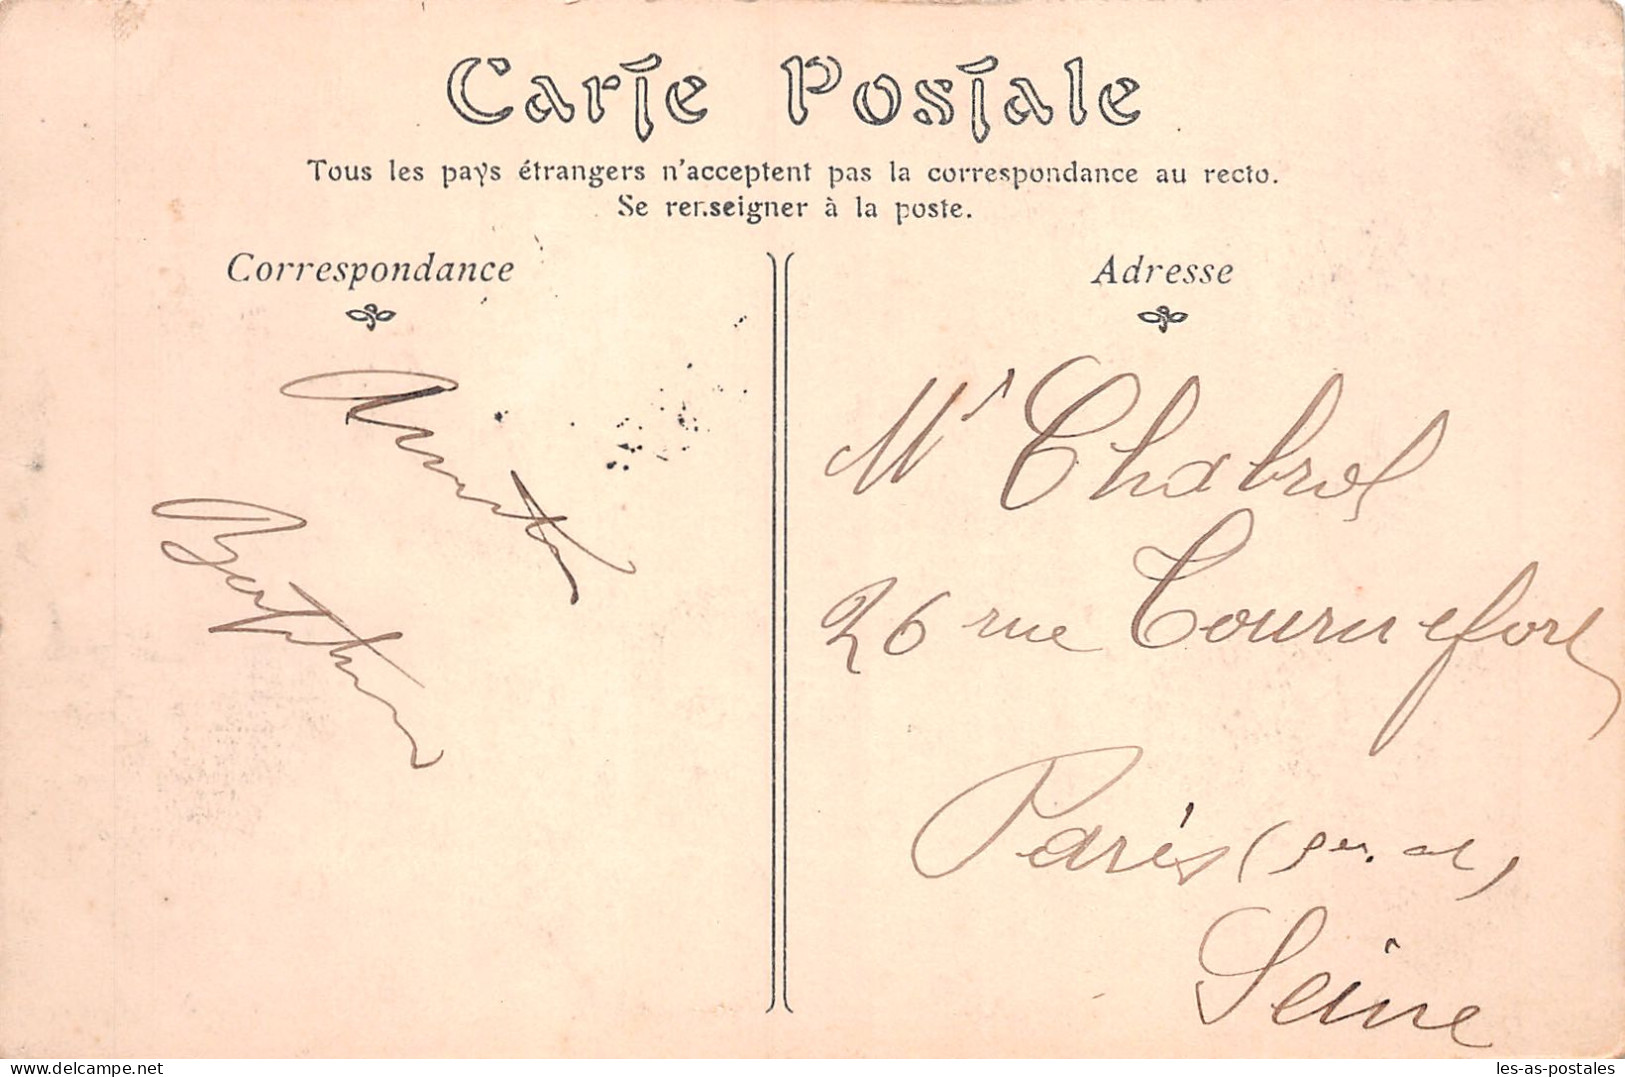 Carte Postale
Tous les pays étrangers n'acceptent pas la correspondance au recto.
Se renseigner à la poste.
Correspondance
Adresse
Mr Chabrol
26 rue Tournefort
Paris
Seine
delcampe.net
les-as-postales